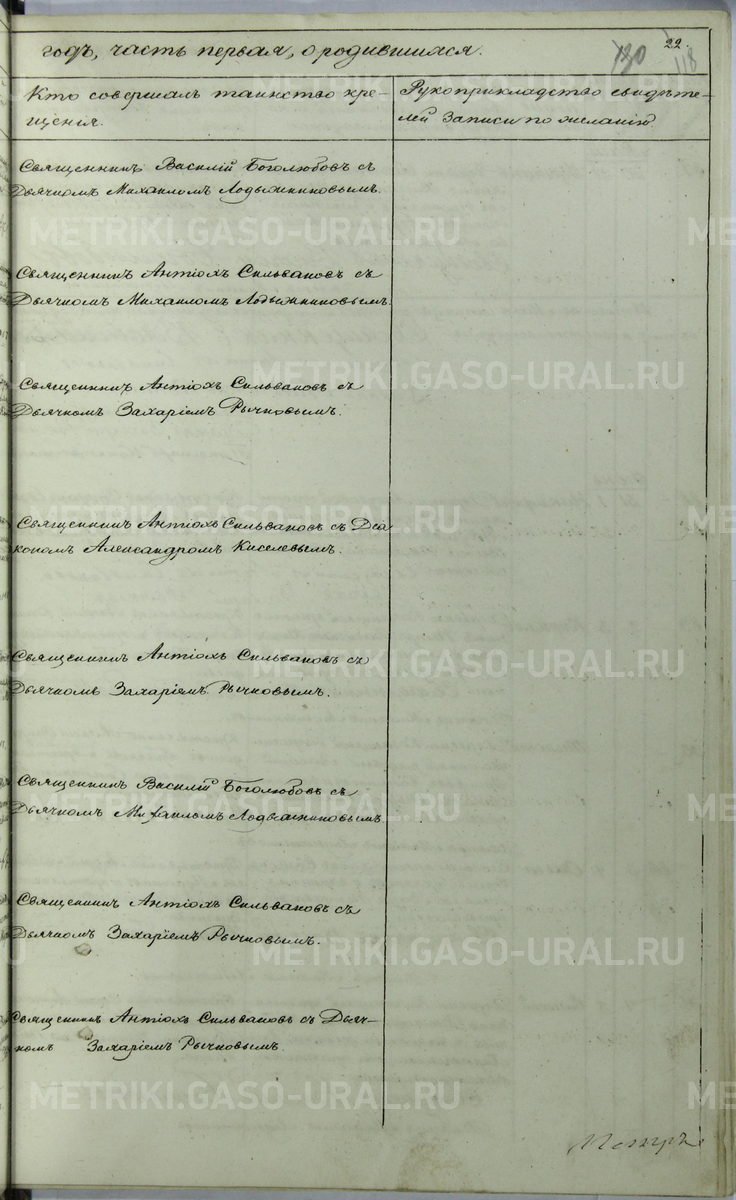 22.
130
118
годъ, часть первая, о родившихся.
Кто совершалъ таинство кре-
щенія.
Рукоприкладство свидѣте-
лей записи по желанію.
Священникъ Василій Боголюбовъ съ
Дьячкомъ Михаиломъ Лодыжниковымъ.
Священникъ Антіохъ Сильвановъ съ
Дьячкомъ Михаиломъ Лодыжниковымъ.
Священникъ Антіохъ Сильвановъ съ
Дьячкомъ Захаріемъ Рычковымъ.
Священникъ Антіохъ Сильвановъ съ Діа
кономъ Александромъ Киселевымъ.
Священникъ Антіохъ Сильвановъ съ
Дьячкомъ Захаріемъ Рычковымъ.
Священникъ Василій Боголюбовъ съ
Дьячкомъ Михаиломъ Лодыжниковымъ
Священникъ Антіохъ Сильвановъ съ
Дьячкомъ Захаріемъ Рычковымъ.
Священникъ Антіохъ Сильвановъ съ Дьяч-
комъ Захаріемъ Рычковымъ.
METRIKI.GASO-URAL.RU